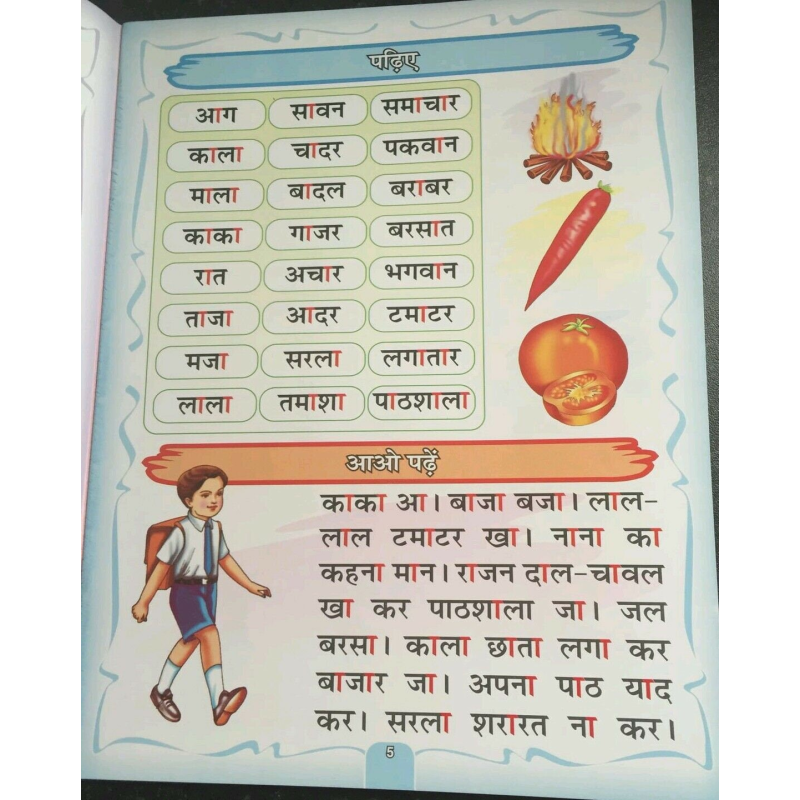 पढ़िए
आग सावन समाचार
काला चादर पकवान
माला बादल बराबर
काका गाजर बरसात
रात अचार भगवान
ताजा आदर टमाटर
मजा सरला लगातार
लाला तमाशा पाठशाला
आओ पढ़ें
काका आ। बाजा बजा। लाल-
लाल टमाटर खा। नाना का
कहना मान। राजन दाल-चावल
खा कर पाठशाला जा। जल
बरसा। काला छाता लगा कर
बाजार जा। अपना पाठ याद
कर। सरला शरारत ना कर।
5